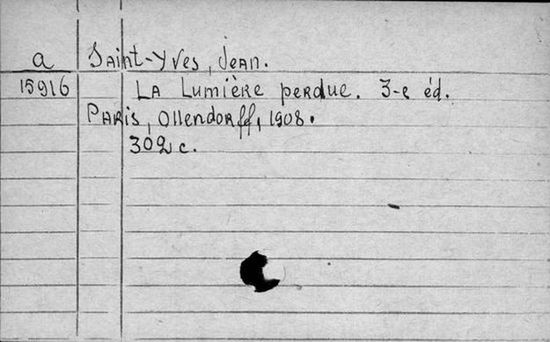 a Saint-Yves, Jean.
15916 La Lumière perdue. 3-e éd.
Paris, Ollendorff, 1908.
302 c.